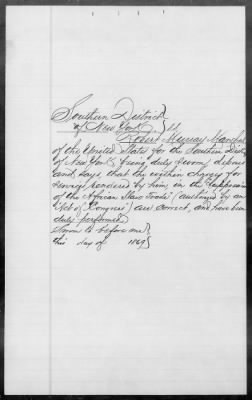 Southern District }
of New York } ss.
Robert Murray Marshal
of the United States for the Southern District
of New York, being duly sworn, deposes
and says that the within charges for
services rendered by him, in the suppression
of the African Slave Trade (authorized by an
Act of Congress) are correct, and have been
duly performed.
Sworn to before me }
this day of 1864 }